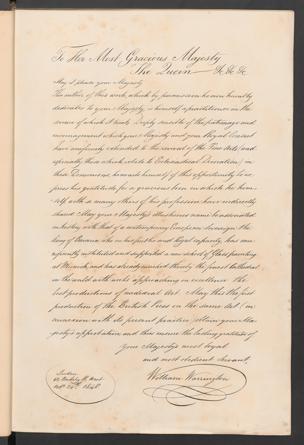 To Her Most Gracious Majesty
The Queen &c &c &c
May it please your Majesty
The author of this work, which by permission he now humbly
dedicates to your Majesty, is himself a practitioner in the
science of which it treats. Deeply sensible of the patronage and
encouragement which your Majesty and your Royal Consort
have uniformly extended to the revival of the Fine Arts (and
especially those which relate to Ecclesiastical Decoration) in
these Dominions, he avails himself of this opportunity to ex-
press his gratitude for a gracious boon in which he him-
self with many others of his profession have indirectly
shared. May your Majesty's illustrious name be associated
in history with that of a contemporary European Sovereign the
King of Bavaria who in his public and regal capacity, has mu-
nificently instituted and supported a new school of Glass painting
at Munich, and has already enriched thereby the finest Cathedral
in the world with works approaching in excellence the
best productions of mediaeval Art. May this the first
production of the British Press on the same Art in
connexion with its present practice obtain your Ma-
jesty's approbation and thus ensure the lasting gratitude of
Your Majesty's most loyal
and most obedient servant,
William Warrington
London
Berkeley St. West
1848